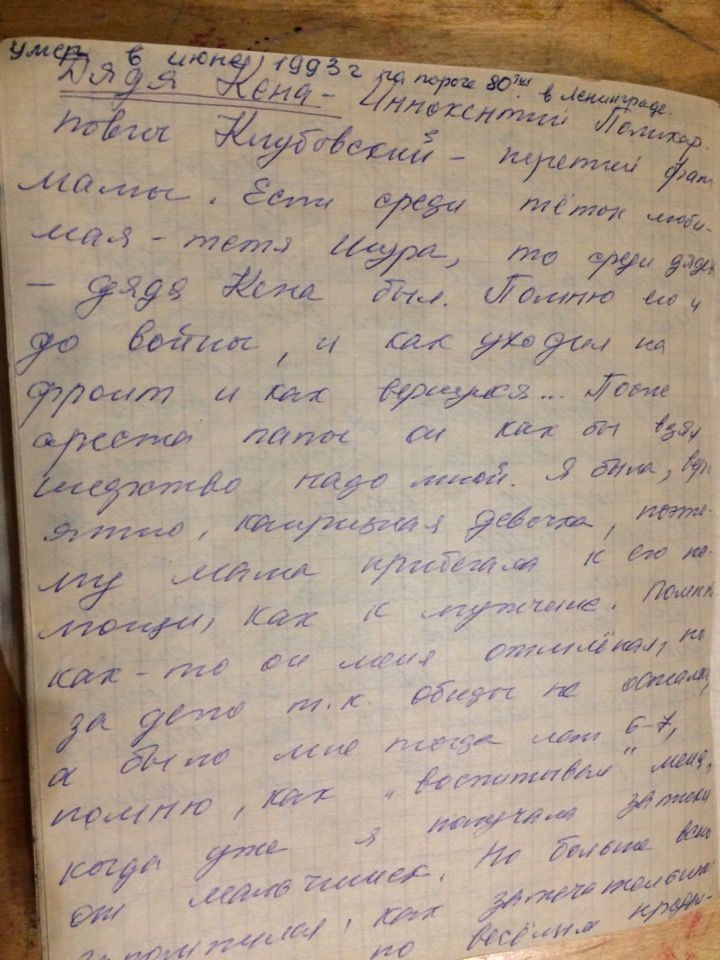 умер в июне 1993 г на пороге 80тия в Ленинграде.
Дядя Кена - Иннокентий Поликар-
пович Клубовский - третий брат
мамы. Если среди тёток люби-
мая - тётя Шура, то среди дядей
- дядя Кена был. Помню его и
до войны, и как уходил на
фронт и как вернулся... После
ареста папы он как бы взял
шефство надо мной. Я была, веро-
ятно, капризная девочка, поэто-
му мама прибегала к его по-
мощи, как к мужчине. Помню
как-то он меня отшлёпал, но
за дело т.к. обиды не осталось,
а было мне тогда лет 6-7,
помню, как "воспитывал" меня,
когда уже я получала записки
от мальчишек. Но больше всего
запомнился, как замечательный
по весёлым